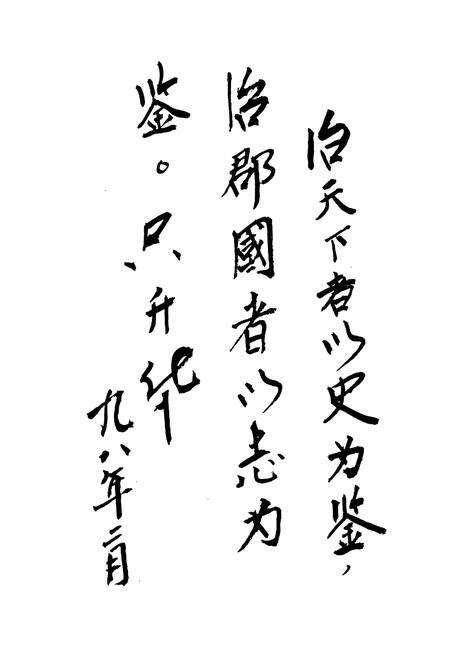 治天下者以史为鉴，
治郡國者以志为
鉴。只升华
九八年二月